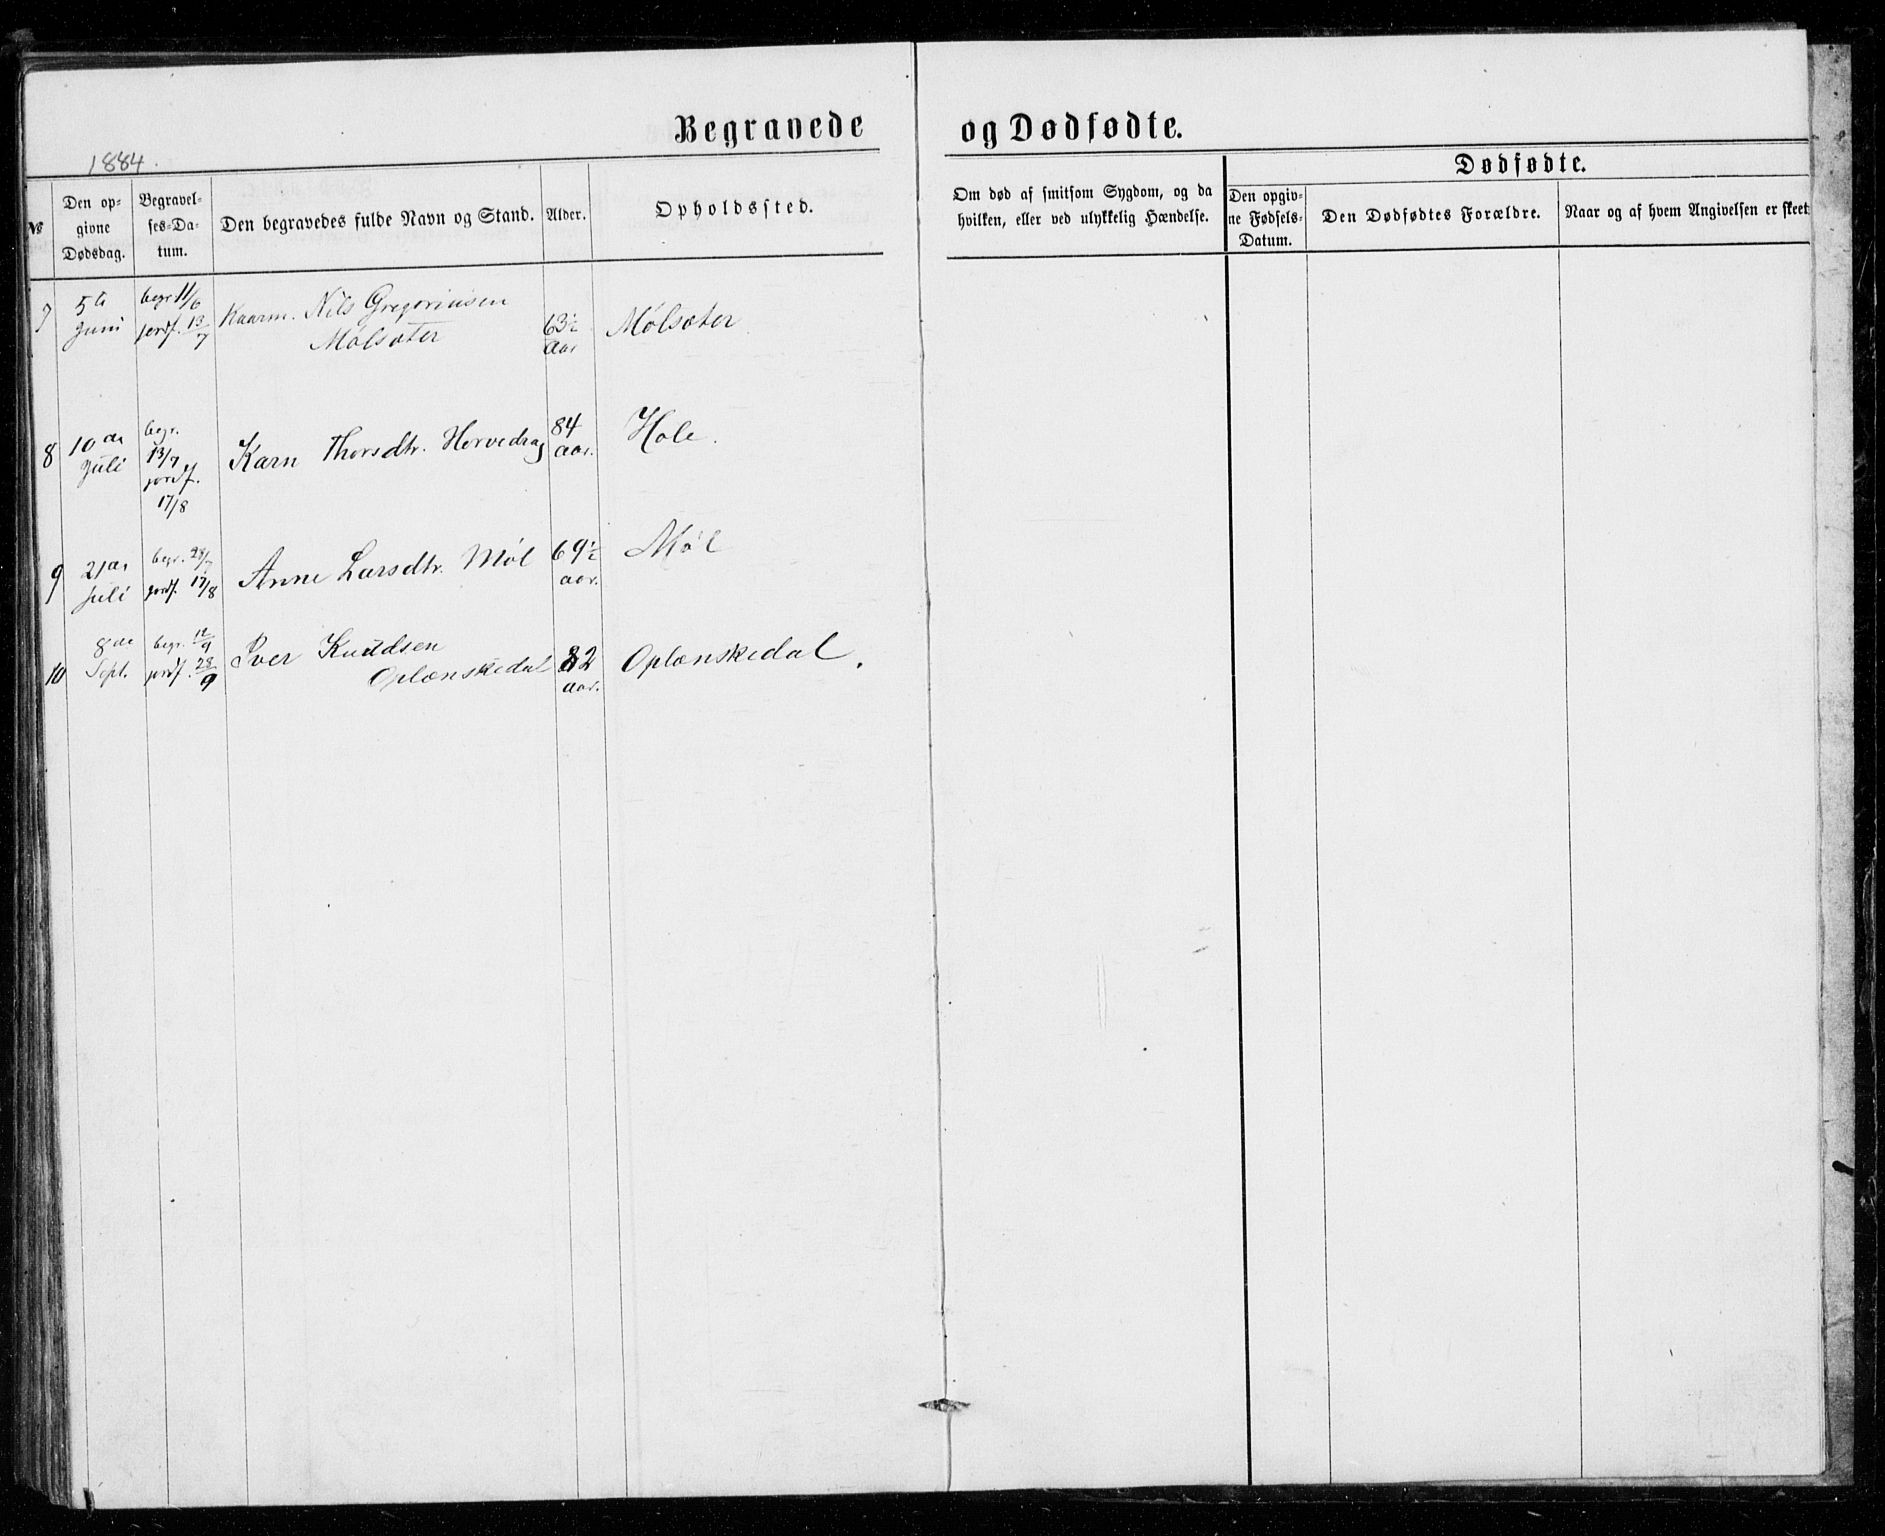 Begravede og Dødfødte.
1884.
Dødfødte.
№
Den op-
givne
Dødsdag.
Begravel-
ses-Da-
tum.
Den begravedes fulde Navn og Stand.
Alder.
Opholdssted.
Om død af smitsom Sygdom, og da
hvilken, eller ved ulykkelig Hændelse.
Den opgiv-
ne Fødsels-
Datum.
Den Dødfødtes Forældre.
Naar og af hvem Angivelsen er skeet
7
5te
Juni
begr 11/6
jordf. 13/7
Kaarm. Nils Gregoriusen
Mølsæter
63½
aar
Mølsæter
8
10de
Juli
begr.
13/7
jordf.
17/8
Karn Thorsdtr. Hervedrag
84
aar.
Hole.
9
21de
Juli
begr. 28/7
jordf. 17/8
Anne Larsdtr. Møl
69½
aar.
Møl
10
8de
Sept.
begr. 12/9
jordf. 28/9
Iver Knudsen
Oplænskedal
82
aar.
Oplænskedal.